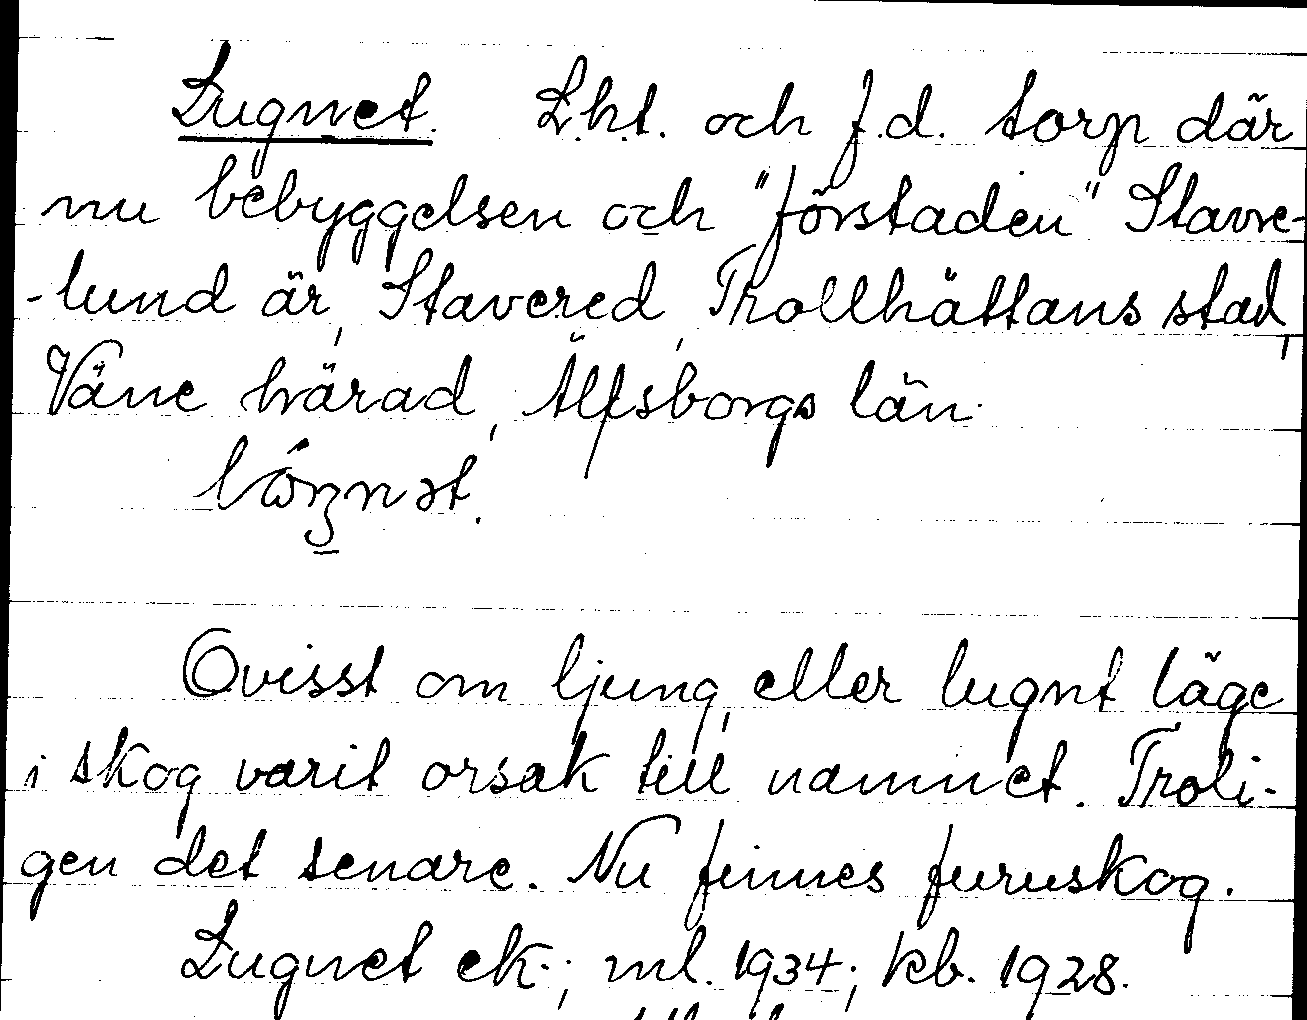 Lugnet. L.h.t. och f.d. torp där
nu bebyggelsen och "förstaden" Stavre-
-lund är, Stavered, Trollhättans stad,
Väne härad, Älfsborgs län.
Ovisst om ljung, eller lugnt läge
i skog varit orsak till namnet. Troli-
gen det senare. Nu finnes furuskog.
Lugnet ek.; ml. 1934; kb. 1928.